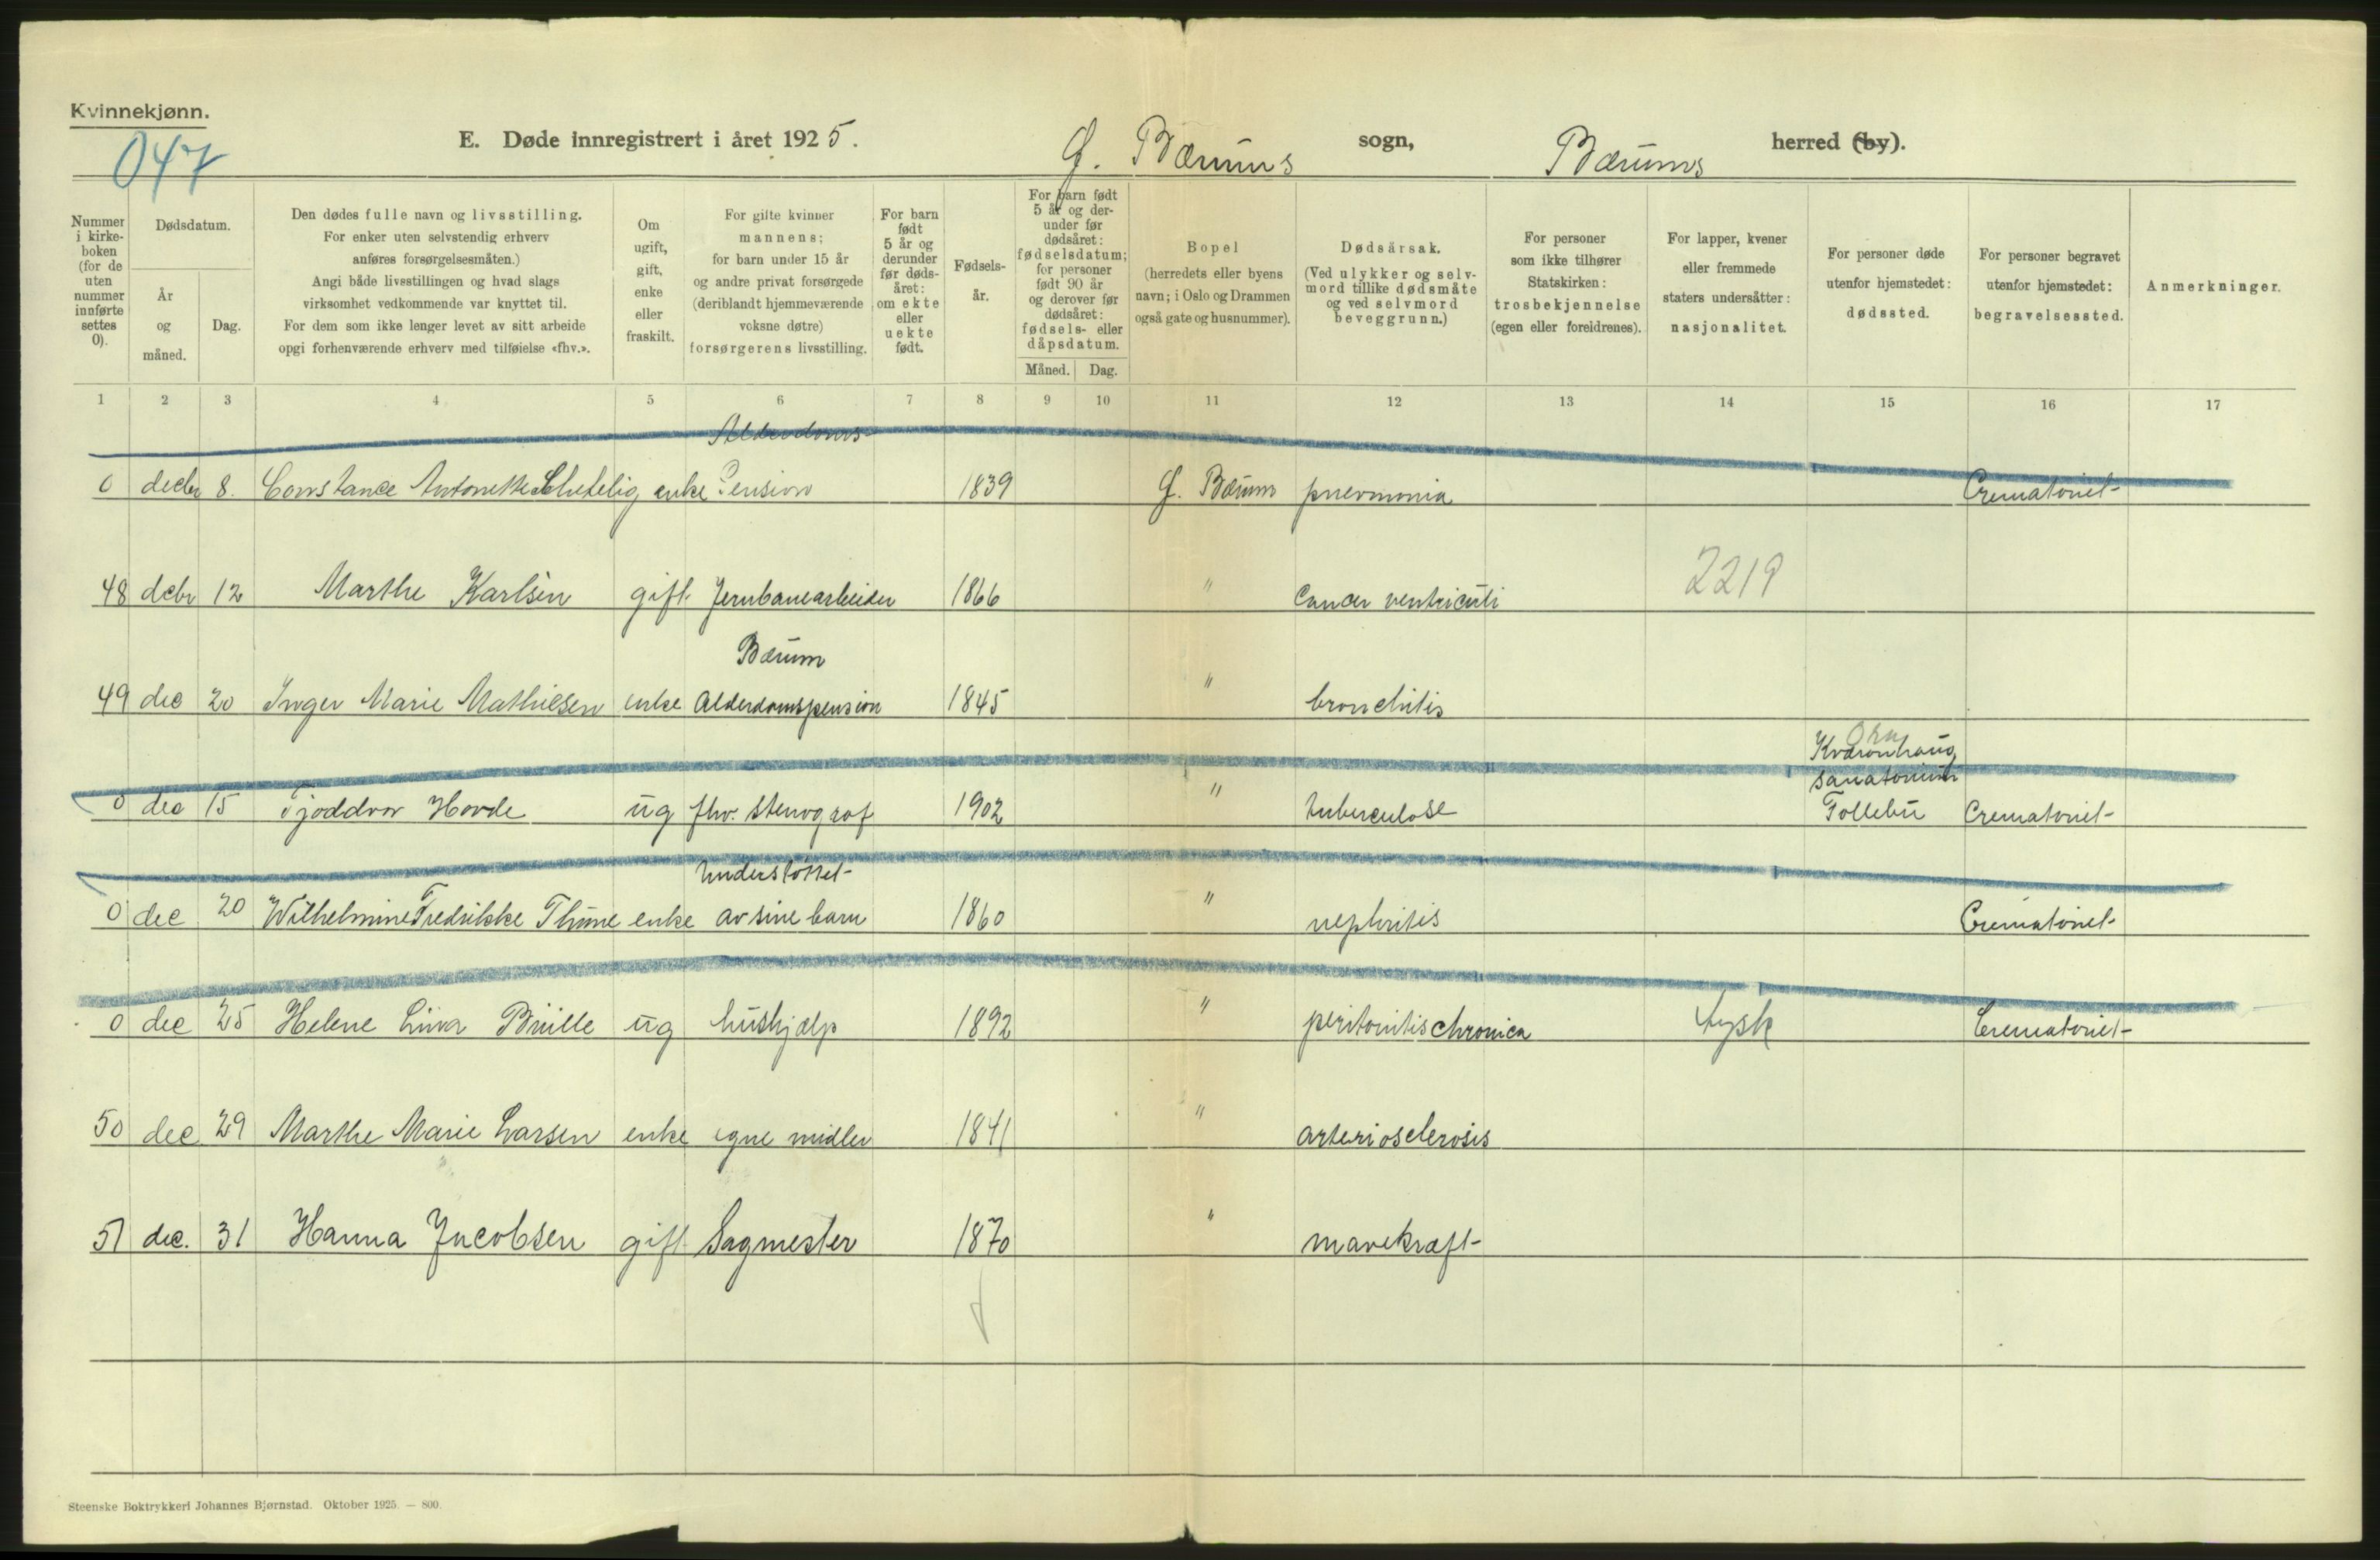 Kvinnekjønn.
047
E. Døde innregistrert i året 1925. Ø. Bærums sogn, Bærums herred (by).
Nummer i kirke-boken (for de uten nummer innførte settes 0).
Dødsdatum.
År og måned.
Dag.
Den dødes fulle navn og livsstilling.
For enker uten selvstendig erhverv
anføres forsørgelsesmåten.)
Angi både livsstillingen og hvad slags
virksomhet vedkommende var knyttet til.
For dem som ikke lenger levet av sitt arbeide
opgi forhenværende erhverv med tilføielse «fhv.».
Om
ugift,
gift,
enke
eller
fraskilt.
For gifte kvinner
mannens;
for barn under 15 år
og andre privat forsørgede
(deriblandt hjemmeværende
voksne døtre)
forsørgerens livsstilling.
For barn
født
5 år og
derunder
før døds-
året:
om ekte
eller
uekte
født.
Fødsels-
år.
For barn født
5 år og der-
under før
dødsåret:
fødselsdatum;
for personer
født 90 år
og derover før
dødsåret:
fødsels- eller
dåpsdatum.
Måned. Dag.
Bopel
(herredets eller byens
navn; i Oslo og Drammen
også gate og husnummer).
Dødsårsak.
(Ved ulykker og selv-
mord tillike dødsmåte
og ved selvmord
beveggrunn.)
For personer
som ikke tilhører
Statskirken:
trosbekjennelse
(egen eller foreldrenes).
For lapper, kvener
eller fremmede
staters undersåtter:
nasjonalitet.
For personer døde
utenfor hjemstedet:
dødssted.
For personer begravet
utenfor hjemstedet:
begravelsessted.
Anmerkninger.
1 2 3 4 5 6 7 8 9 10 11 12 13 14 15 16 17
Alderdoms-
0 decbr 8. Constance Antonette Schetelig enke Pension 1839 Ø. Bærum pnevmonia Crematoriet
48 decbr 12 Marthe Karlsen gift Jernbanearbeider 1866 " Cancer ventriculi 2219
Bærum
49 dec 20 Inger Marie Mathiesen enke Alderdomspension 1845 " bronchitis
Kvarnhaug
sanatorium
0 dec 15 Tjoddvor Hovde ug fhv. stenograf 1902 " tuberculose Follebu Crematoriet
Understøttet
0 dec 20 Wilhelmine Fredrikke Thune enke av sine barn 1860 " nephritis Crematoriet
0 dec 25 Helene Luva Brülle ug hushjælp 1892 " peritonitis chronica tysk Crematoriet
50 dec 29 Marthe Marie Larsen enke egne midler 1841 " arteriosclerosis
51 dec. 31 Hanna Jacobsen gift Sagmester 1870 " mavekræft
Steenske Boktrykkeri Johannes Bjørnstad. Oktober 1925. — 800.